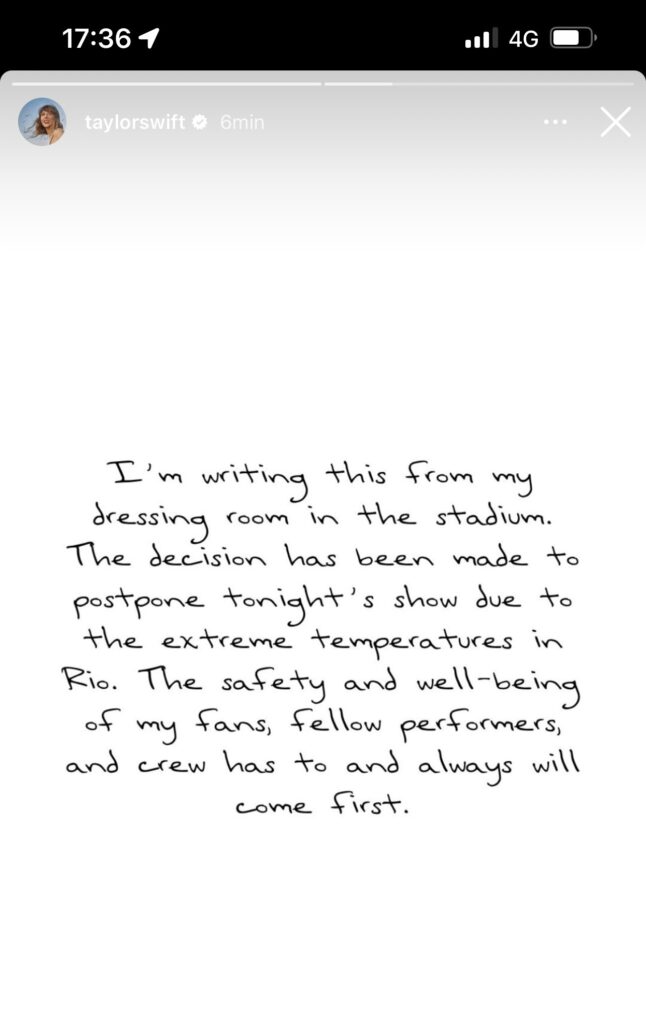 17:36 4G
taylorswift 6min
I'm writing this from my
dressing room in the stadium.
The decision has been made to
postpone tonight's show due to
the extreme temperatures in
Rio. The safety and well-being
of my fans, fellow performers,
and crew has to and always will
come first.